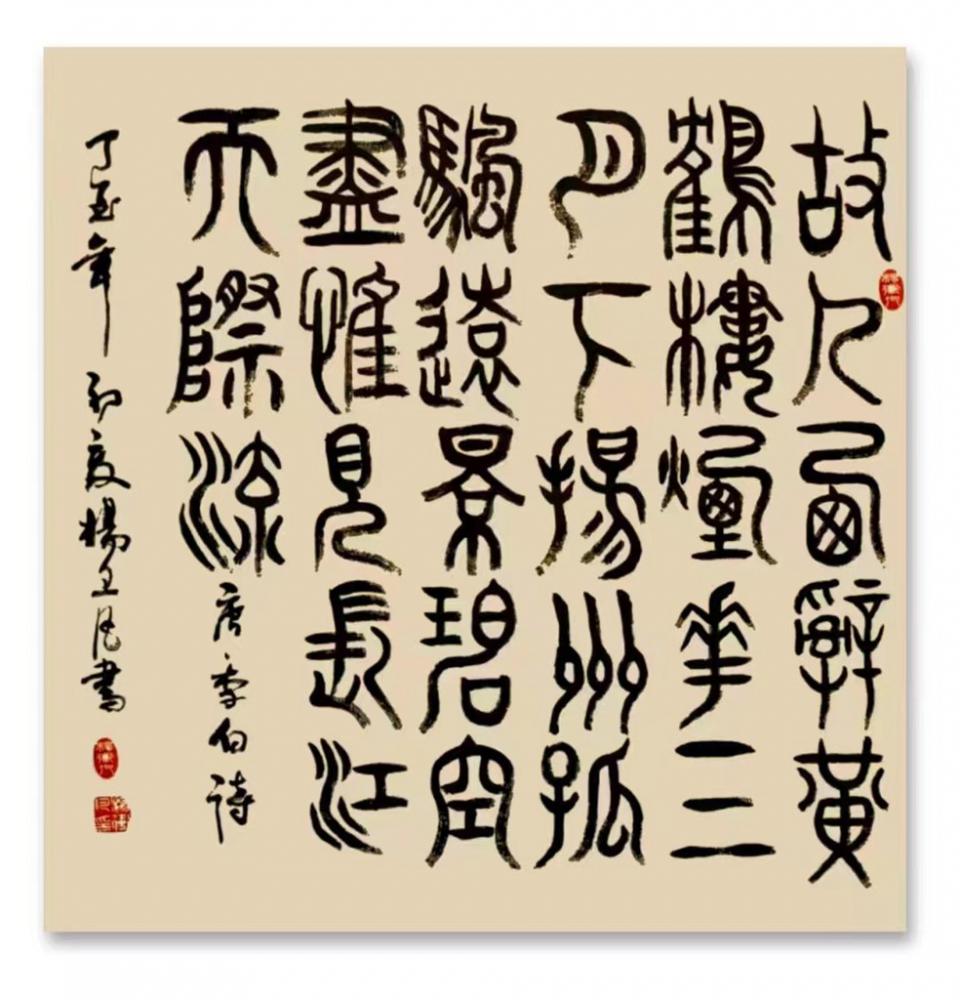 故人西辭黃
鶴樓煙華三
月下揚州孤
颿遠景碧空
盡惟見長江
天際流 唐李白詩
丁酉年初夏楊玉書